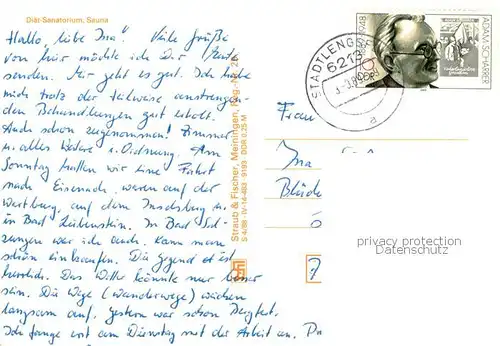 Diät-Sanatorium, Sauna
Hallo, liebe Ina! Viele Grüße
von hier möchte ich Dir heute
senden. Mir geht es gut. Ich habe
mich trotz der teilweise anstrengen-
den Behandlungen gut erholt.
Auch schon zugenommen! Zimmer
u. alles Weitere in Ordnung. Am
Sonntag hatten wir eine Fahrt
nach Eisenach, waren auf der
Wartburg, auf dem Inselsberg u.
in Bad Liebenstein. In Bad Sal-
zungen war ich auch. Kann man
schön einkaufen. Die Gegend ist
herrlich. Das Wetter könnte nur besser
sein. Die Wege (Wanderwege) weichen
langsam auf. Gestern war schon Bergfest.
Ich fange erst am Dienstag mit der Arbeit an.
Straub & Fischer, Meiningen,
S 4/88 · IV-14-483 · 9193 · DDR 0,25 M
STADTLENGS
6213
a
1948
ADAM SCHARRER
DDR
Frau
Ina
privacy protection
Datenschutz